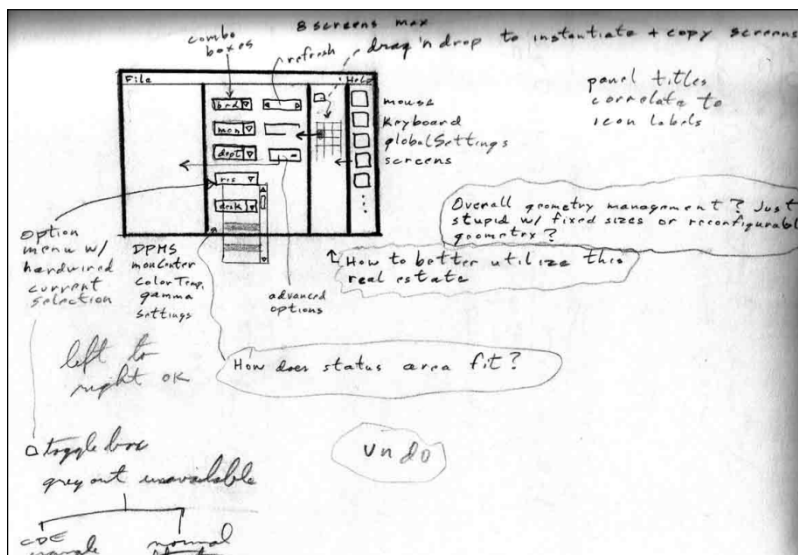 8 screens max
combo
boxes
refresh
drag 'n drop to instantiate + copy screens
File
Help
panel titles
correlate to
icon labels
brd
mon
dept
res
desk
mouse
keyboard
globalSettings
screens
Overall geometry management? Just
stupid w/ fixed sizes or reconfigurable
geometry?
How to better utilize this
real estate
option
menu w/
hardwired
current
selection
DPMS
monCenter
ColorTemp,
gamma
settings
advanced
options
left to
right OK
How does status area fit?
undo
toggle box
grey out unavailable
CDE
normal